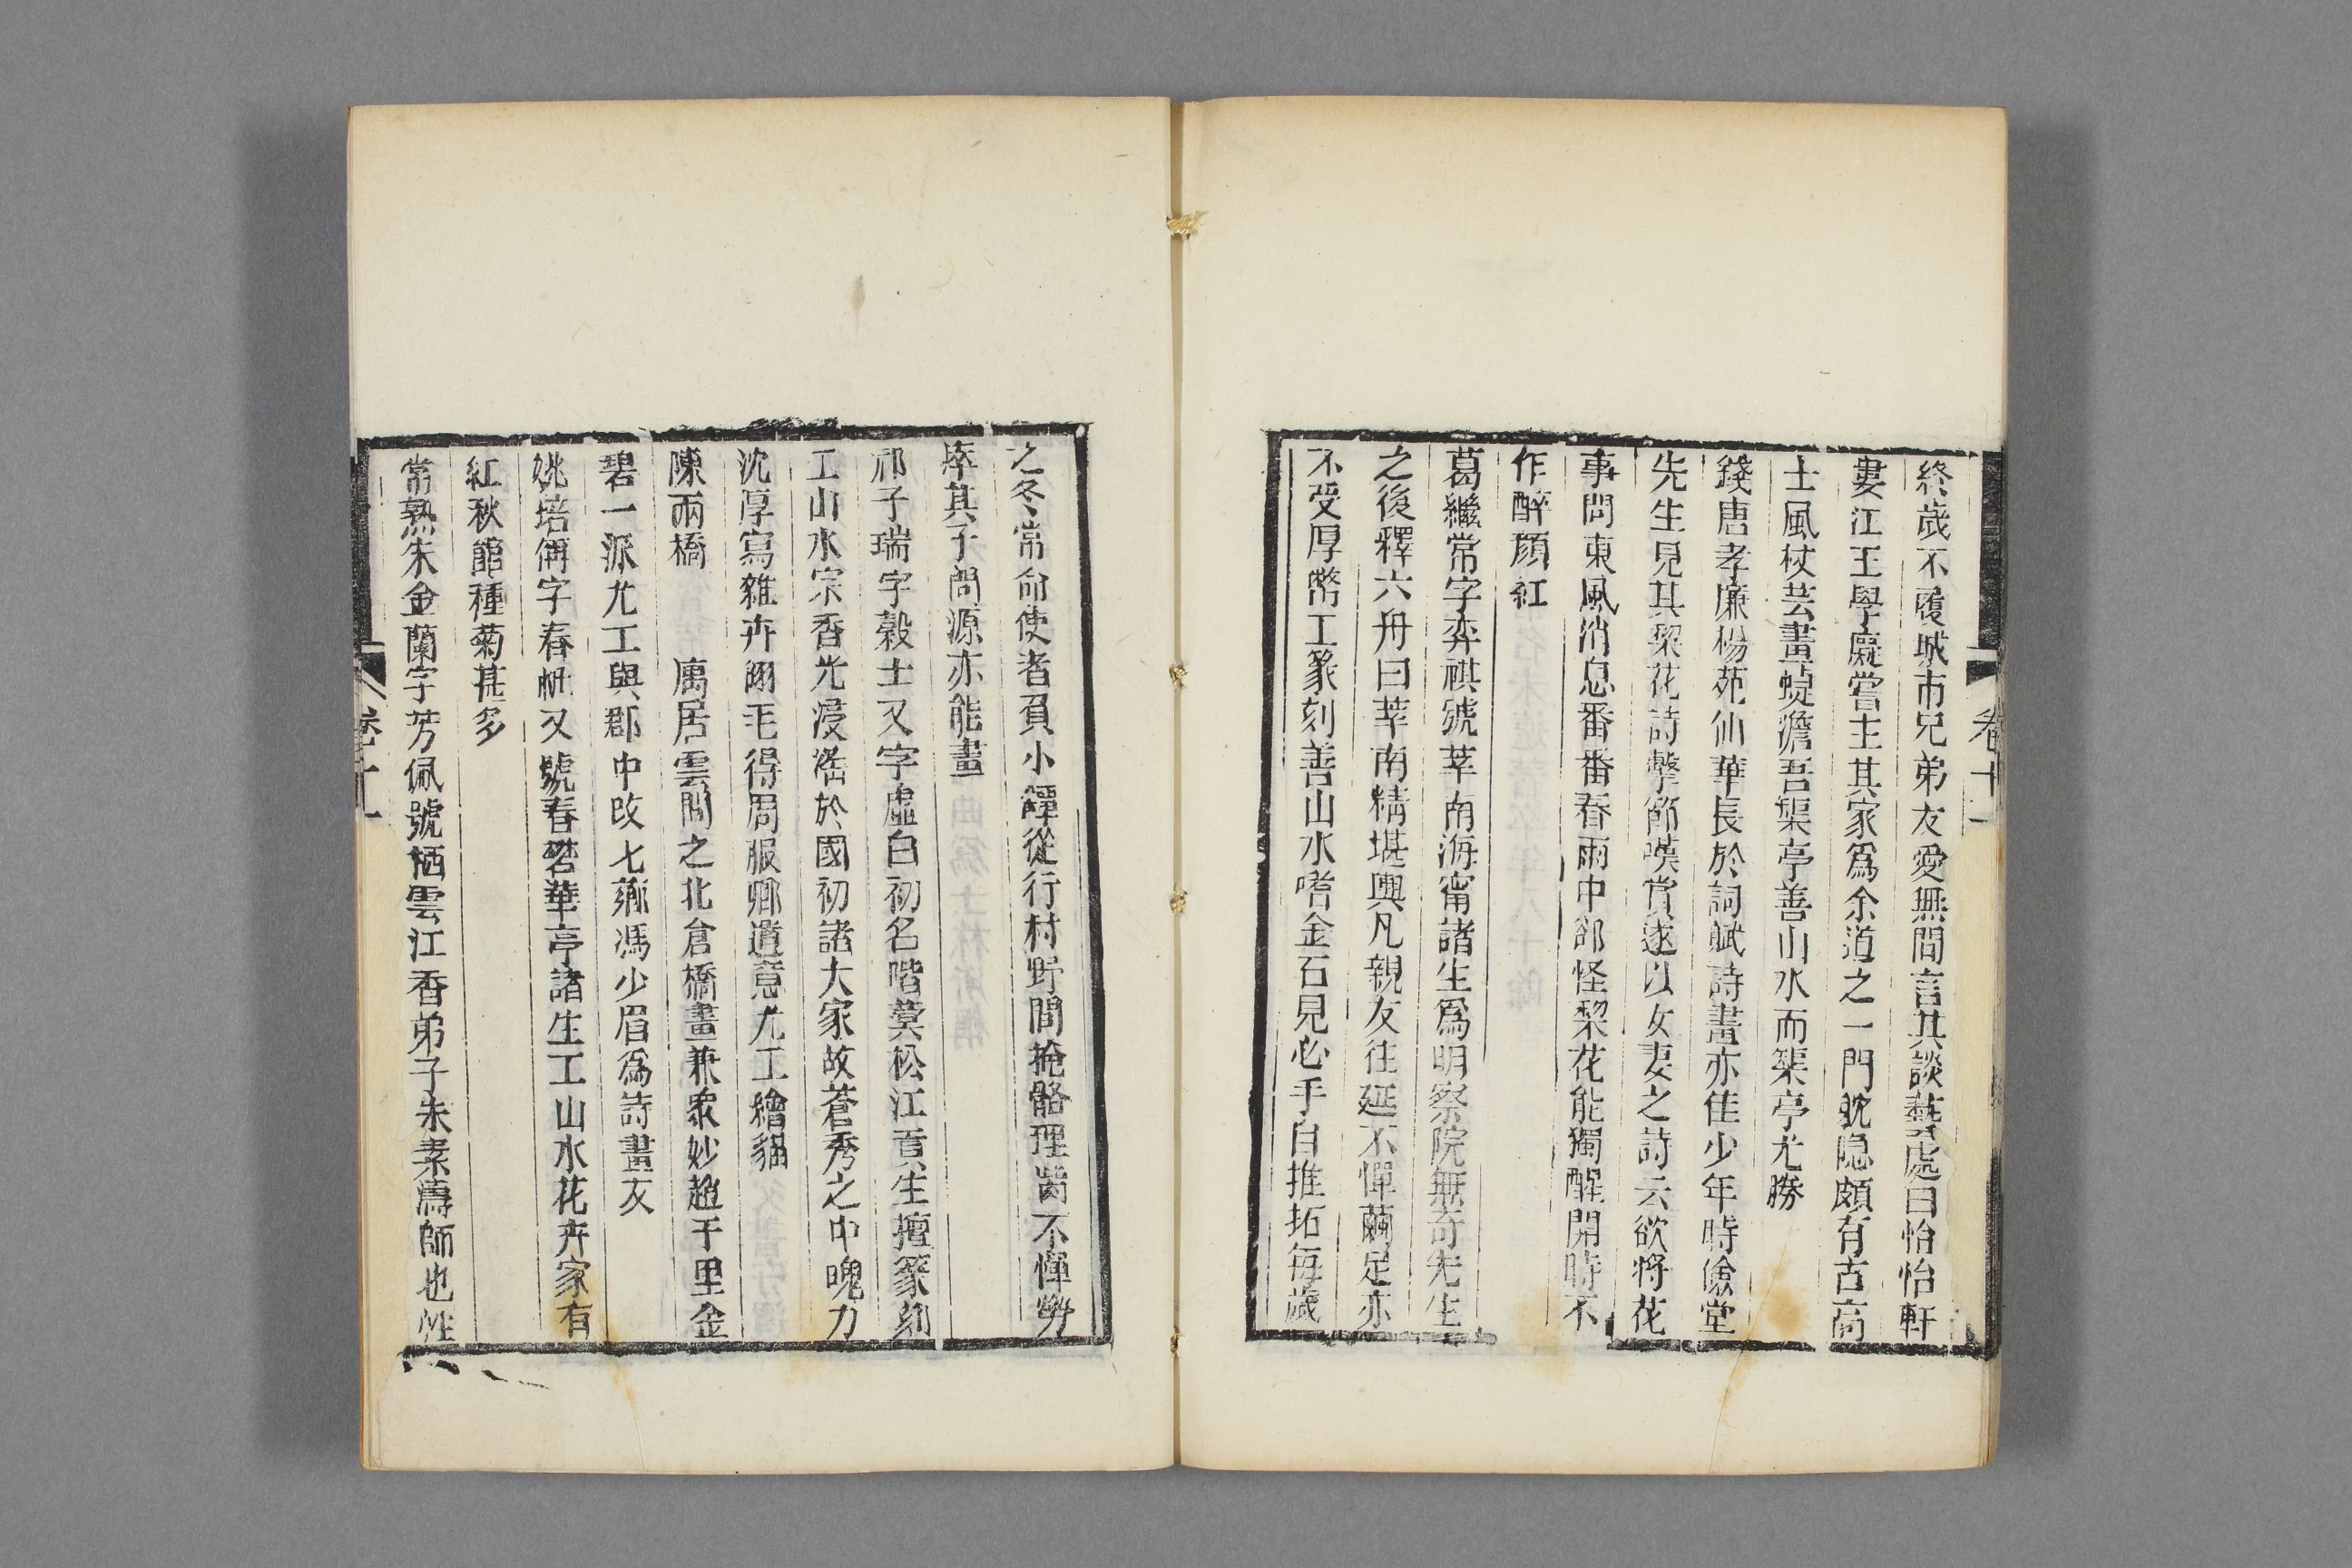 終歲不履城市兄弟友愛無間言其談藝處曰怡怡軒
婁江王學廣嘗主其家爲余道之一門耽隐頗有古高
士風杖芸畫蜨澹吾榘亭善山水而榘亭尤勝
錢唐孝廉楊苑仙華長於詞賦詩畫亦佳少年時儉堂
先生見其棃花詩擊節嘆賞遂以女妻之詩云欲將花
事問東風消息番番春雨中卻怪棃花能獨醒開時不
作醉顏紅
葛繼常字奕祺號莘南海甯諸生爲明察院無奇先生
之後釋六舟曰莘南精堪輿凡親友往延不憚繭足亦
不受厚幣工篆刻善山水嗜金石見必手自推拓每歲
卷十一
之冬常命使者負小罈從行村野間掩骼理胔不憚勞
卒其子問源亦能畫
祁子瑞字穀士又字虛白初名階蓂松江貢生擅篆刻
工山水宗香光浸滛於國初諸大家故蒼秀之中魄力
沈厚寫雜卉翎毛得周服卿遺意尤工繪貓
陳雨橋 寓居雲間之北倉橋畫兼衆妙趙千里金
碧一派尤工與郡中改七薌馮少眉爲詩畫友
姚培偁字春帆又號春磬華亭諸生工山水花卉家有
紅秋館種菊甚多
常熟朱金蘭字芳佩號栖雲江香弟子朱素濤師也性
卷十一